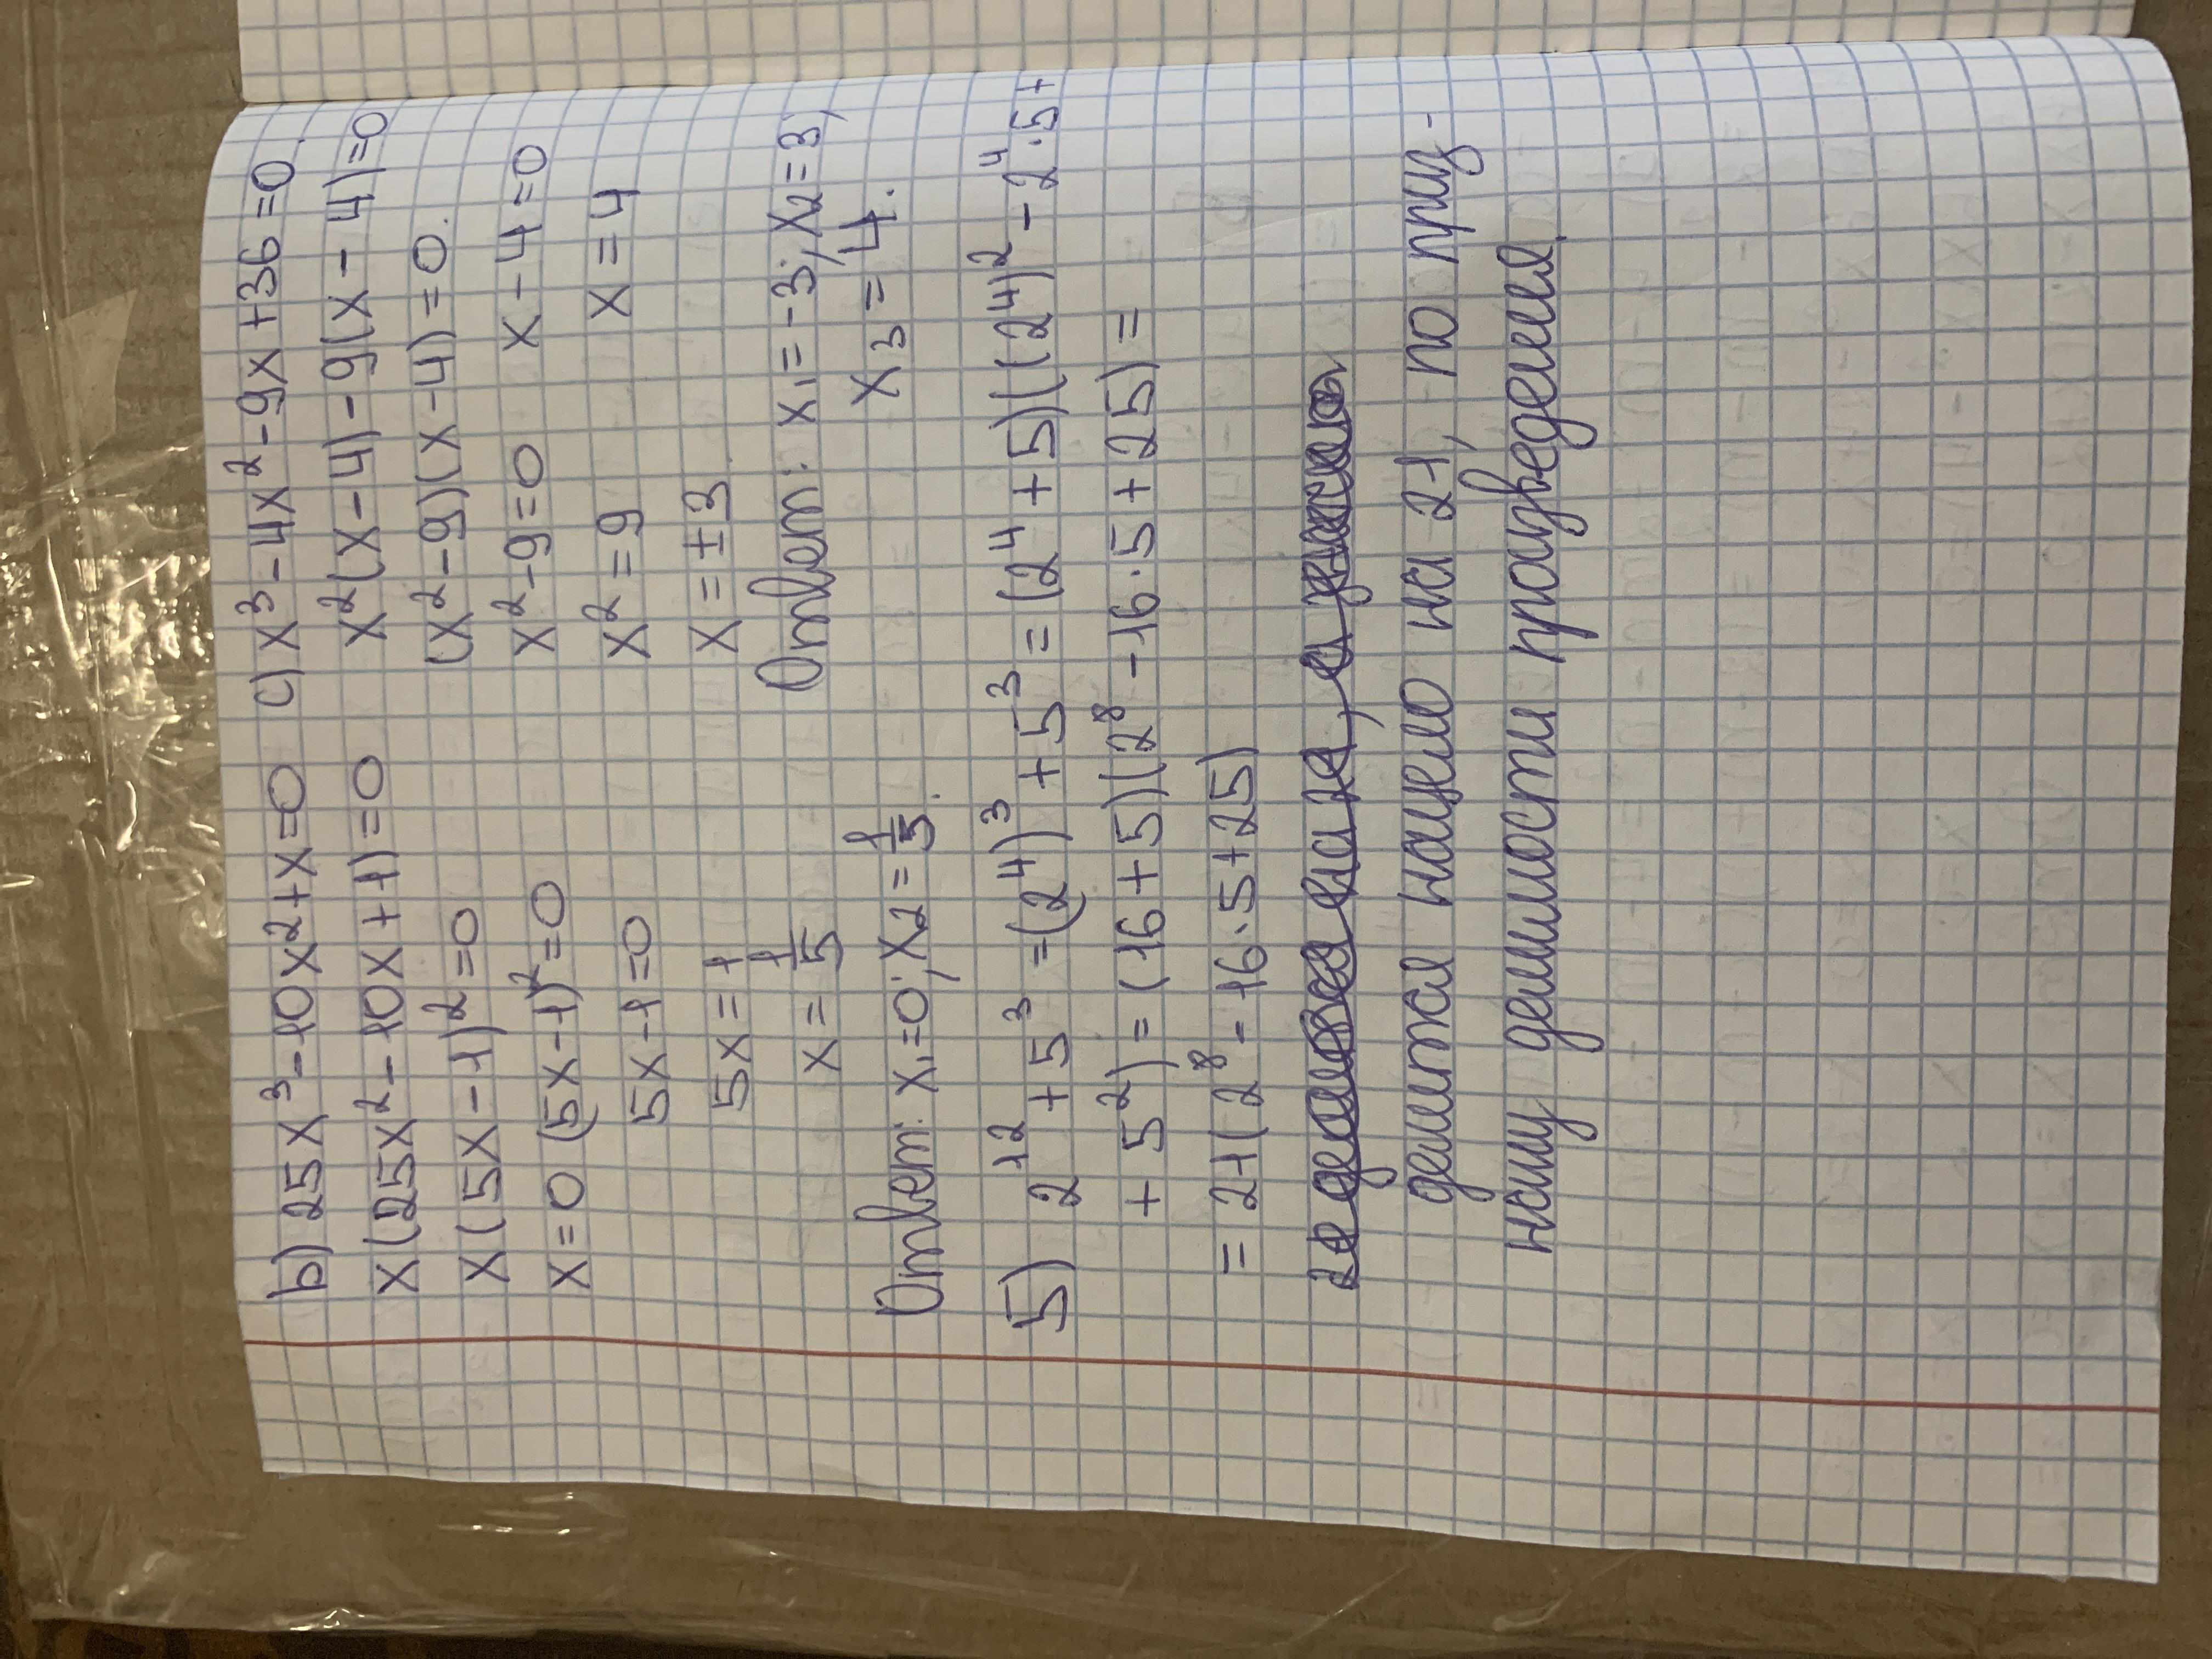 b) 25x³-10x²+x=0
x(25x²-10x+1)=0
x(5x-1)²=0
x=0 (5x-1)²=0
5x-1=0
5x=1
x=1/5
Ответ: x₁=0; x₂=1/5.
c) x³-4x²-9x+36=0.
x²(x-4)-9(x-4)=0
(x²-9)(x-4)=0.
x²-9=0 x-4=0
x²=9 x=4
x=±3
Ответ: x₁=-3; x₂=3;
x₃=4.
5) 2¹²+5³=(2⁴)³+5³=(2⁴+5)((2⁴)²-2⁴·5+
+5²)=(16+5)(2⁸-16·5+25)=
=21(2⁸-16·5+25)
делится нацело на 21, по приц-
ницу делимости произведения.